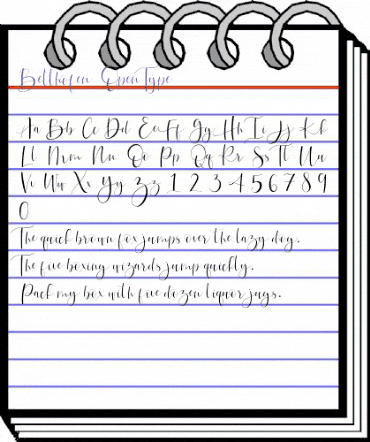 Bellhofen OpenType
Aa Bb Cc Dd Ee Ff Gg Hh Ii Jj Kk
Ll Mm Nn Oo Pp Qq Rr Ss Tt Uu
Vv Ww Xx Yy Zz 1 2 3 4 5 6 7 8 9
0
The quick brown fox jumps over the lazy dog.
The five boxing wizards jump quickly.
Pack my box with five dozen liquor jugs.